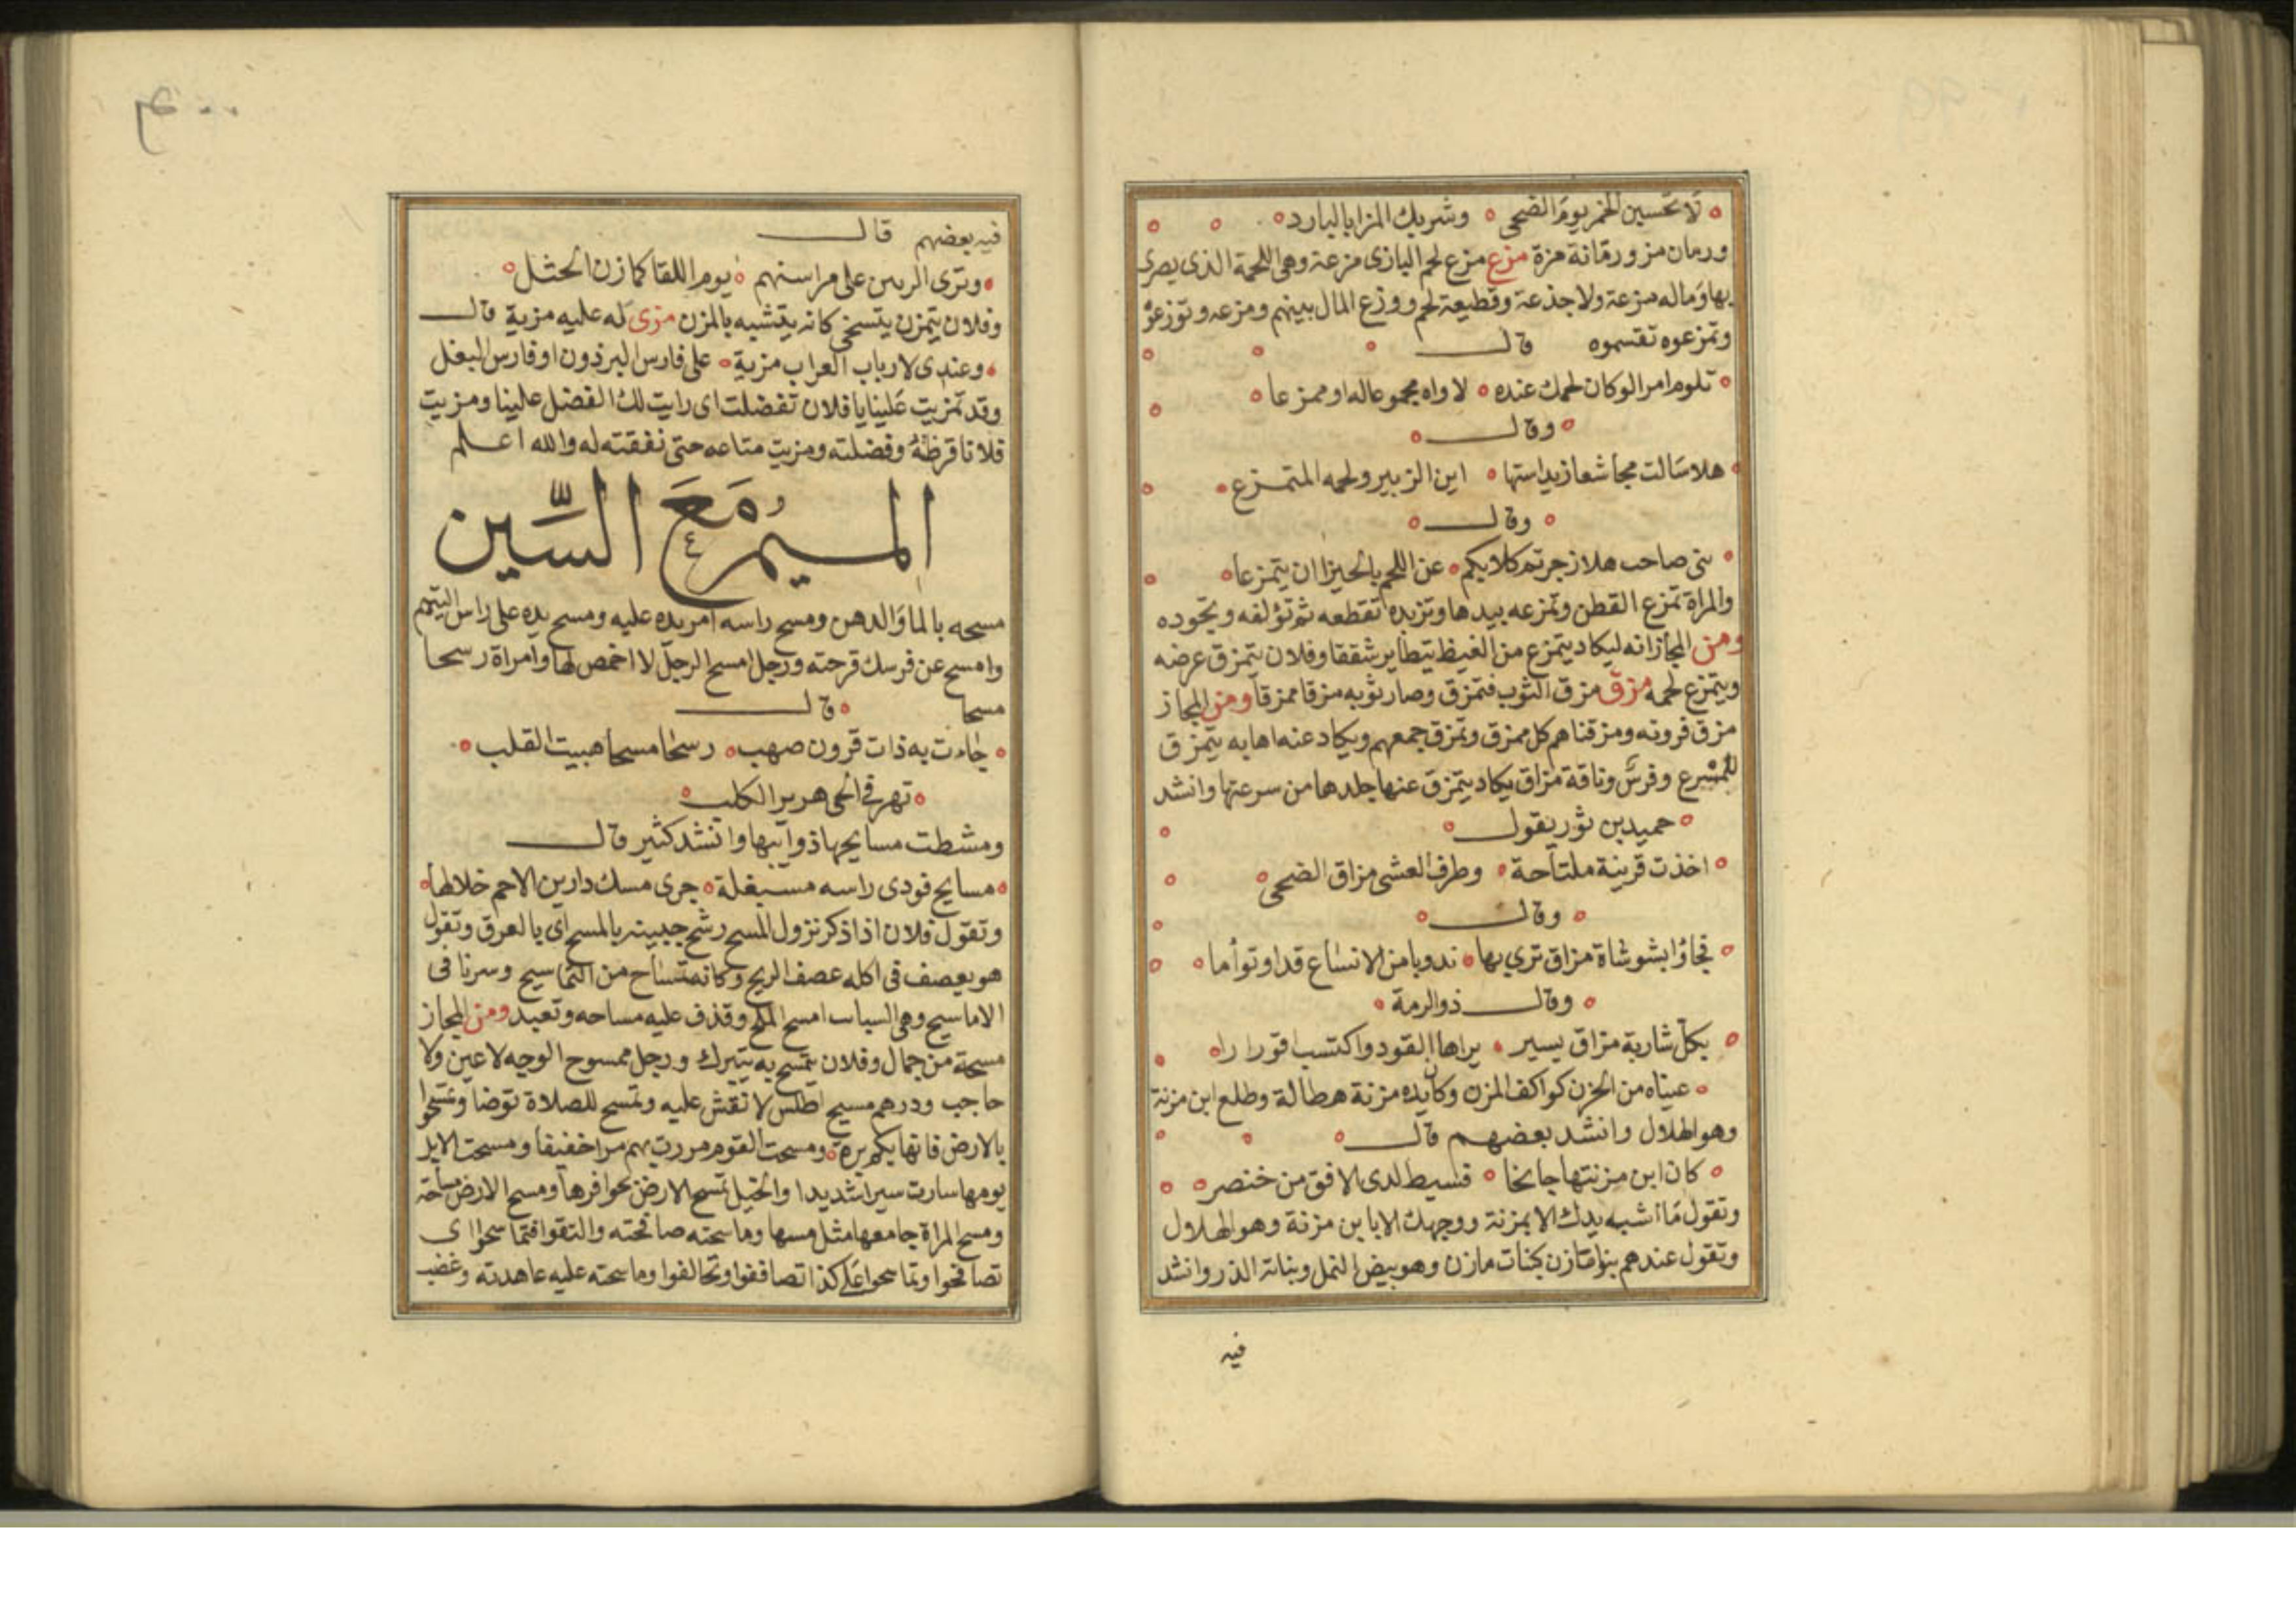 لا تحسبن الخمر يوم الضحى وشربك المزا بالبارد
ورمان مز ورمانة مزة مزع مزع لحم البازى مزعة وهى اللحمة الذى يضرى
بها وماله مزعة ولا جذعة وقطيعة لحم ووزع المال بينهم ومزعه وتوزعوه
وتمزعوه تقسموه قال
تلوم امرا لو كان لحمك عنده لاواه مجموعا له او ممزعا
وقال
هلا سالت مجاشعا زبد استها اين الزبير ولحمه المتمزع
وقال
بنى صاحب هلا زجرتم كلابكم عن اللحم بالحيزا ان يتمزعا
والمراة تمزع القطن وتمزعه بيدها وتزبده تقطعه ثم تؤلفه وتجوده
ومن المجاز انه ليكاد يتمزع من الغيظ يتطاير شققا وفلان يتمزق عرضه
ويتمزع لحمه مزق مزق الثوب فتمزق وصار ثوبه مزقا ممزقا ومن المجاز
مزق فروته ومزقناهم كل ممزق وتمزق جمعهم ويكاد عنه اهابه يتمزق
للمسرع وفرس وناقة مزاق يكاد يتمزق عنها جلدها من سرعتها وانشد
حميد بن ثور يقول
اخذت قرينة ملتاحة وطرف العشى مزاق الضحى
وقال
فجاؤا بشوشاة مزاق ترى بها ندوبا من الانساع قدا وتوأما
وقال ذو الرمة
بكل شاربة مزاق يسير براها القود واكتسب اقورارا
عيناه من الحزن كواكف المزن وكان يده مزنة هطالة وطلع ابن مزنة
وهو الهلال وانشد بعضهم قال
كان ابن مزنتها جانحا فسيط لدى الافق من خنصر
وتقول ما اشبه يدك الا بمزنة ووجهك الا بابن مزنة وهو الهلال
وتقول عندهم بنوا مازن كبنات مازن وهو بيض النمل وبناته الذر وانشد
فيه
فيه بعضهم قال
وترى على مراسنهم يوم اللقا كمازن الجثل
وفلان يتمزن يتسخى كانه يتشبه بالمزن مزى له عليه مزية قال
وعندى لارباب العراب مزية على فارس البرذون او فارس البغل
وقد تمزيت علينا يا فلان تفضلت اى رايت لك الفضل علينا ومزيت
فلانا قرظته وفضلته ومزيت متاعه حتى نفقته له والله اعلم
الميم مع السين
مسحه بالما والدهن ومسح راسه امر يده عليه ومسح يده على راس اليتيم
وامسح عن فرسك قرحته ورجل امسح الرجل لا اخمص لها وامراة رسحا
مسحا قال
جاءت به ذات قرون صهب رسحا مسحا هبيت القلب
تهر فى الحى هرير الكلب
ومشطت مسايحها ذوائبها وانشد كثير قال
مسايح فودى راسه مسبغلة جرى مسك دارين الاحم خلالها
وتقول فلان اذا ذكر نزول المسيح رشح جبينه بالمسح اى بالعرق وتقول
هو يعصف فى اكله عصف الريح وكانه تمساح من التماسيح وسرنا فى
الاماسيح وهى السباسب امسح الملح وقذف عليه مساحه وتعبد ومن المجاز
مسحة من جمال وفلان يتمسح به يتبرك ورجل ممسوح الوجه لا عين ولا
حاجب ودرهم مسيح اطلس لا نقش عليه وتمسح للصلاة توضا وتمسحوا
بالارض فانها بكم برة ومسحت القوم مررت بهم مرا خفيفا ومسحت الابل
يومها سارت سيرا شديدا والخيل تمسح الارض بحوافرها ومسح الارض مساحة
ومسح المراة جامعها مثل مسها وماسحته صافحته والتقوا فتماسحوا اى
تصافحوا وتماسحوا على كذا تصافقوا وتحالفوا وماسحته عليه عاهدته وغضب